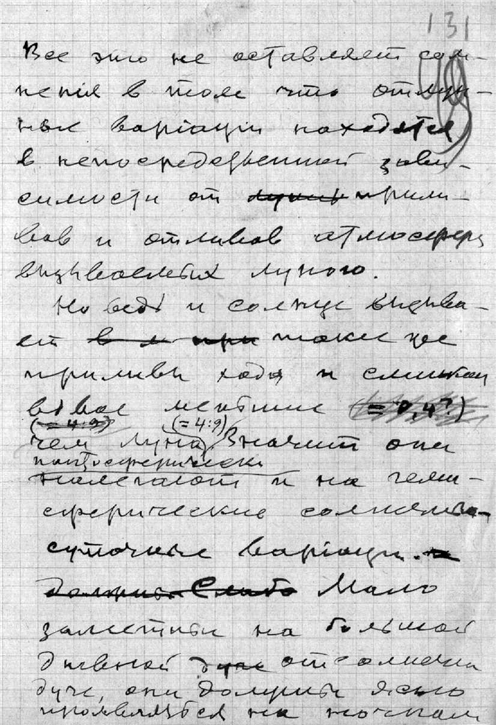 131
Все это не оставляет сом-
ненія в том что отлун-
ные варіаціи находятся
в непосредственной зави-
симости от прили-
вов и отливов атмосферы
вызываемых луною.
Но ведь и солнце вызыва-
ет такие же
приливы хотя и слишком
вдвое меньшие (= 0,4?)
(= 4:9?) (= 4:9)
чем луна. Значит они
налегают и на геми-
сферические солнечно-
суточные варіаціи.
Мало
заметные на большой
дневной отсолнечн
дуге, они должны ясно
проявляться на ночном